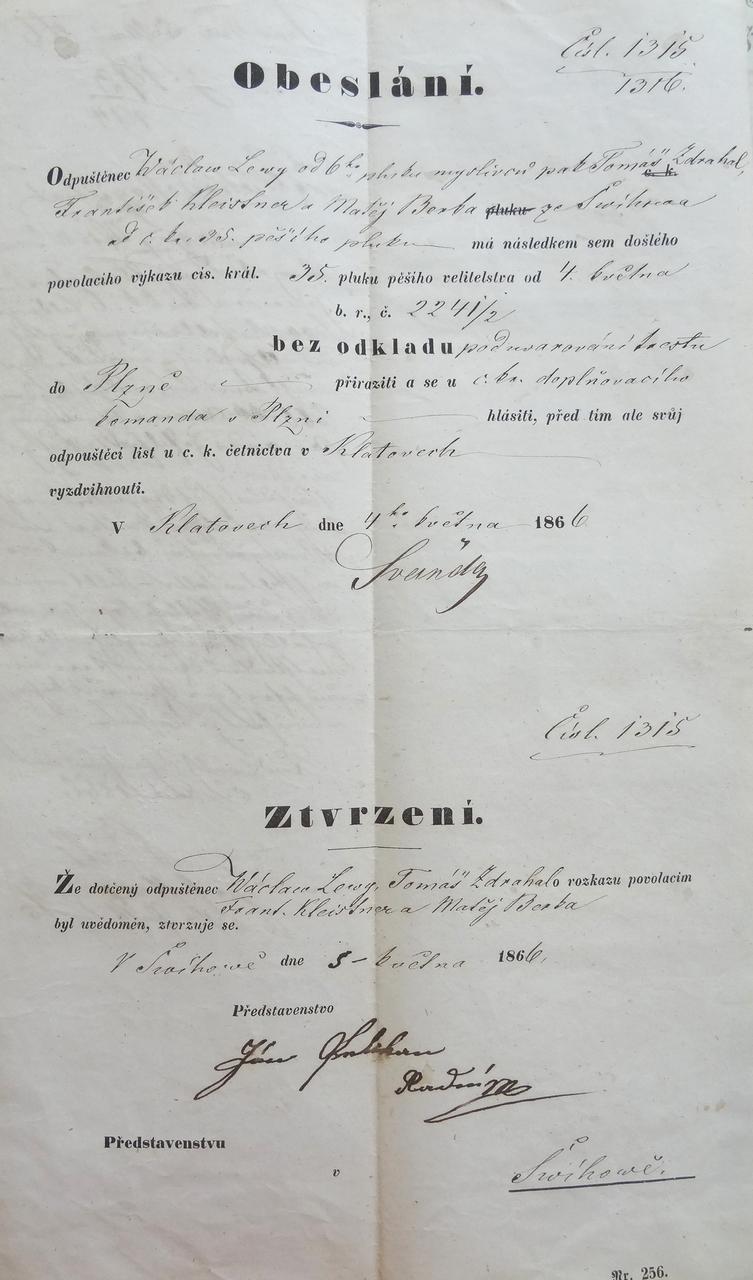 Čísl. 1315
1316.
Obeslání.
Odpuštěnec Wáclaw Lewy od 6ho pluku myslivců pak Tomáš Zdrahal,
c. k.
František Kleistner a Matěj Berba pluku ze Šwihowa
od c. kr. 35. pěšího pluku má následkem sem došlého
povolacího výkazu cís. král. 35. pluku pěšího velitelstva od 4. května
b. r., č. 2241/2
bez odkladu pod uvarování trestu
do Plzně přiraziti a se u c. kr. doplňovacího
komanda v Plzni hlásiti, před tím ale svůj
odpouštěcí list u c. k. četnictva v Klatovech
vyzdvihnouti.
V Klatovech dne 4ho května 1866
Čísl. 1315
Ztvrzení.
Že dotčený odpuštěnec Wáclaw Lewy, Tomáš Zdrahal o rozkazu povolacím
Frant. Kleistner a Matěj Berba
byl uvědomen, ztvrzuje se.
V Šwihowě dne 5 – května 1866.
Představenstvo
Ján
Radní
Představenstvu
v Šwihowě.
Nr. 256.